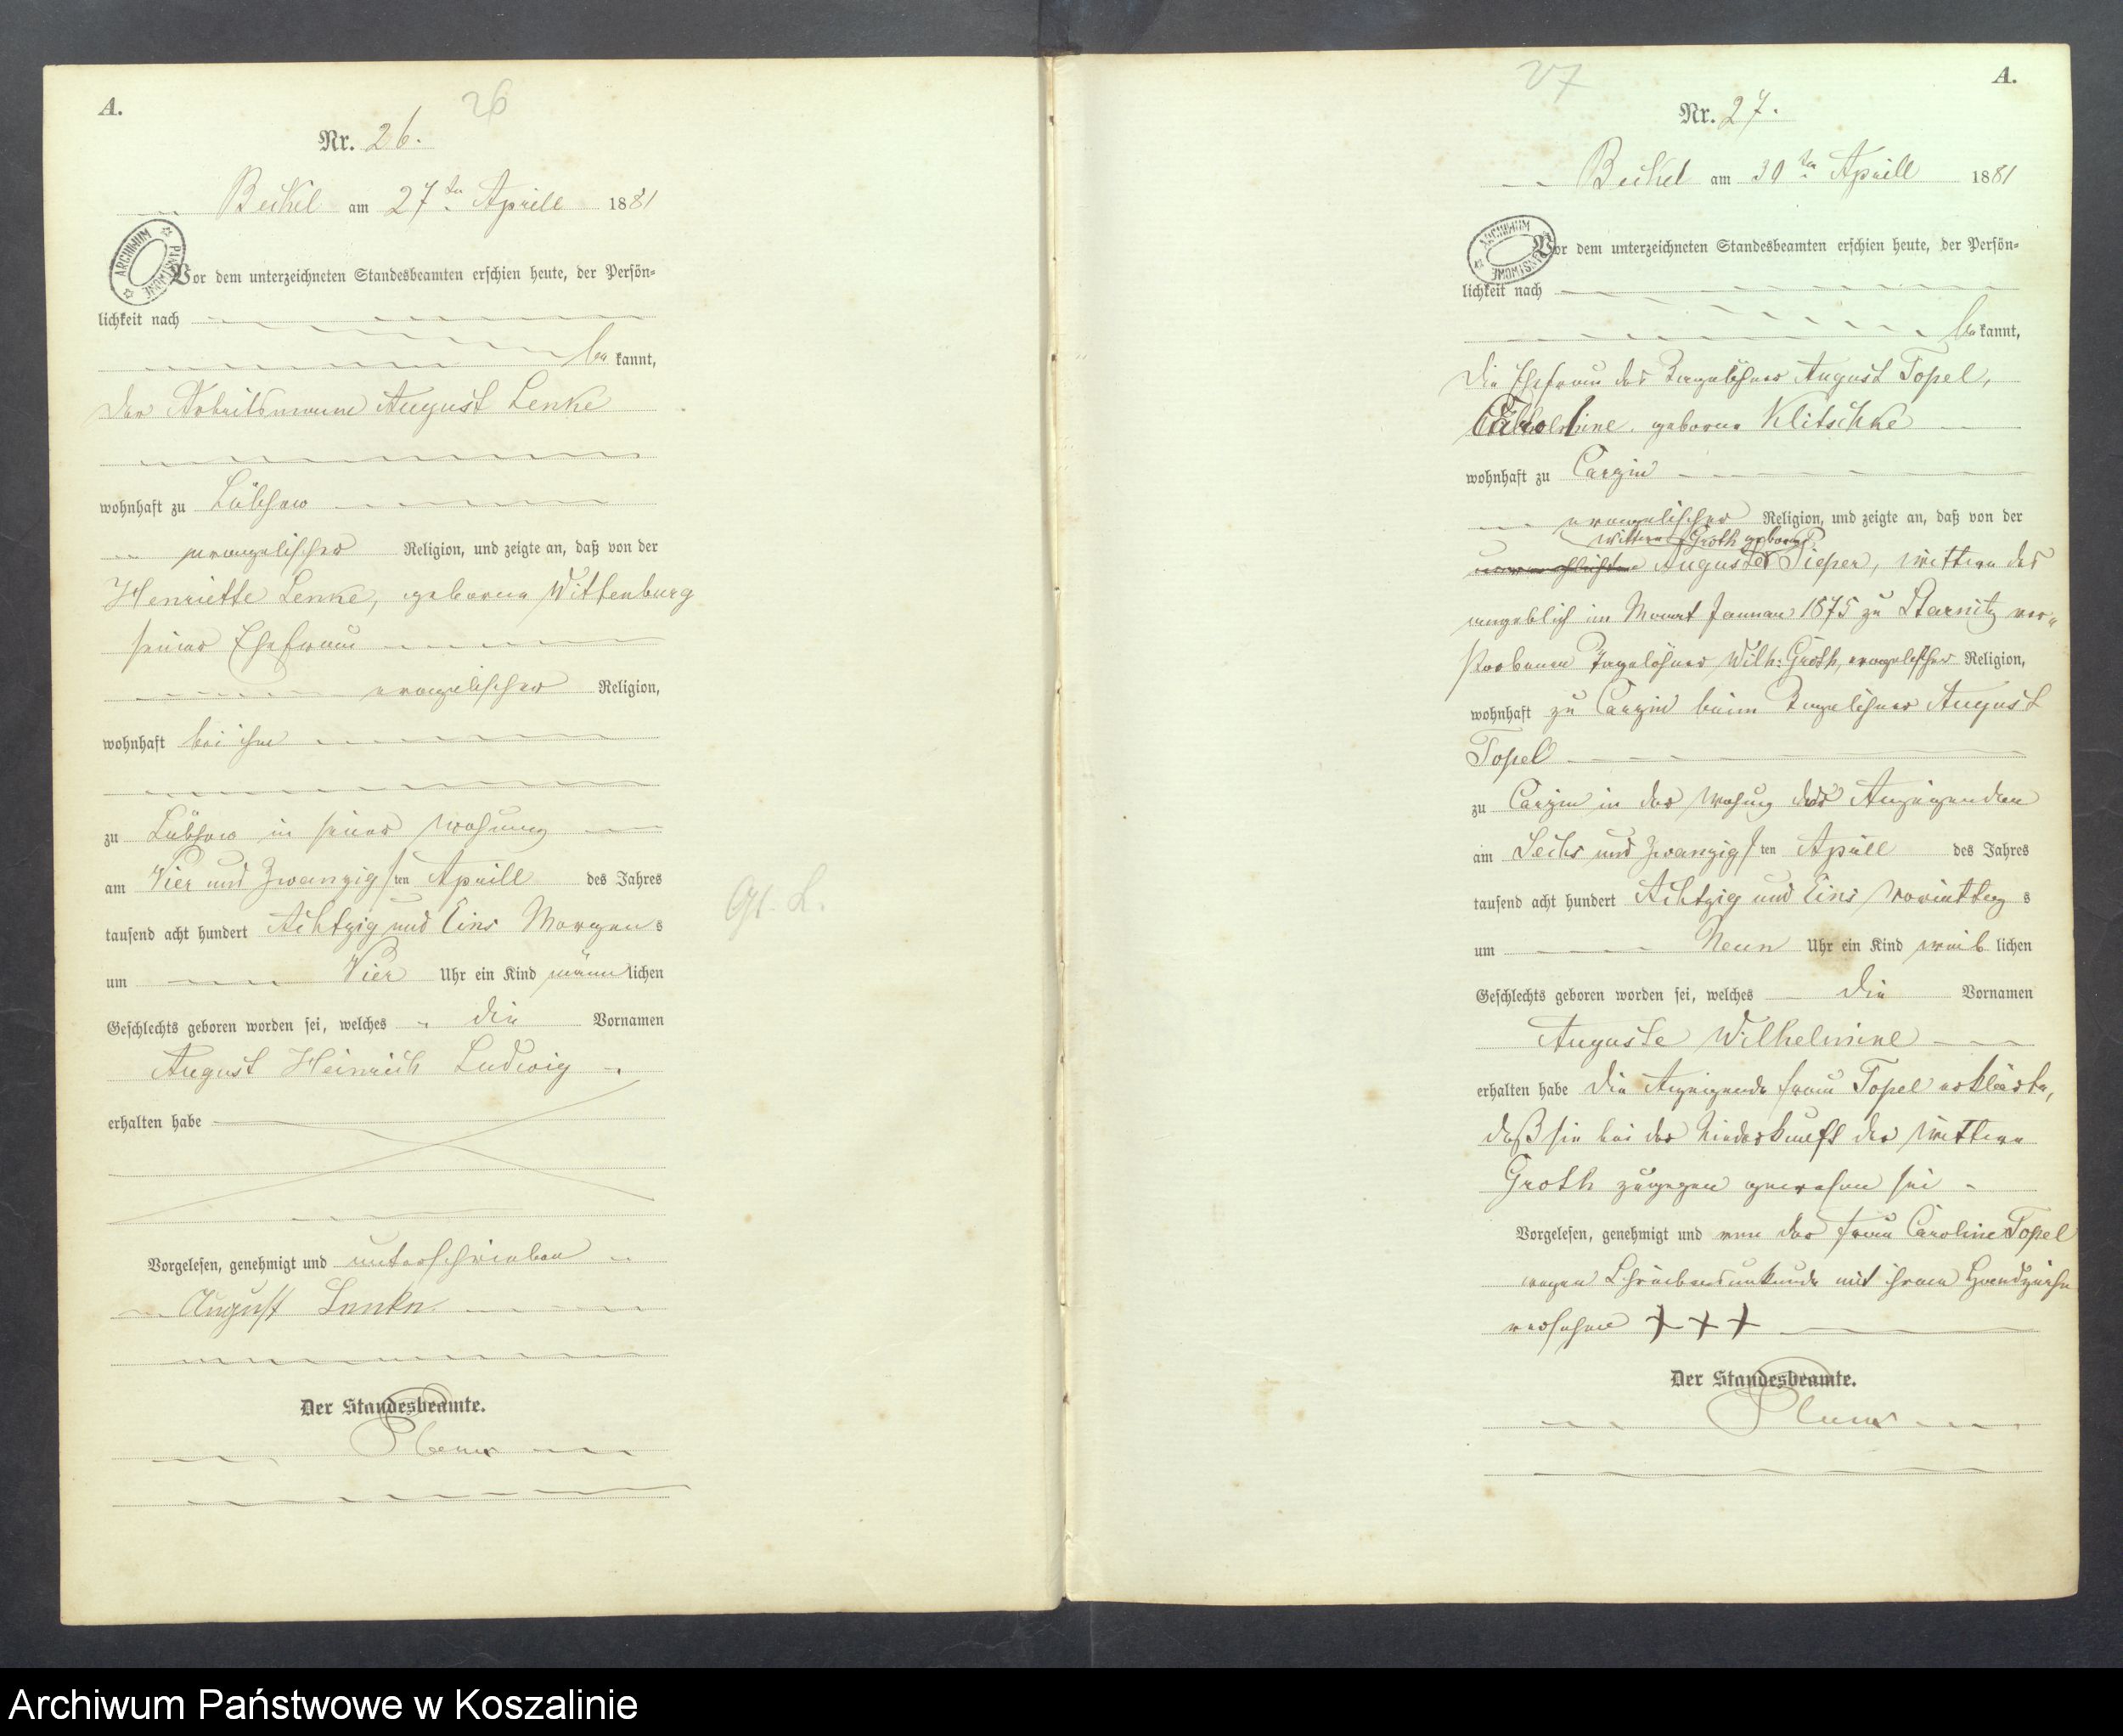 A.
26
Nr. 26.
Beckel am 27ten Aprill 1881
ARCHIWUM PAŃSTWOWE
Vor dem unterzeichneten Standesbeamten erschien heute, der Persön-
lichkeit nach
be kannt,
der Arbeitsmann August Lenke
wohnhaft zu Lübzow
evangelischer Religion, und zeigte an, daß von der
Henriette Lenke, geborene Wittenburg
seiner Ehefrau
evangelischer Religion,
wohnhaft bei ihm
zu Lübzow in seiner Wohnung
am Vier und Zwanzigsten Aprill des Jahres
tausend acht hundert Achtzig und Eins Morgens
um Vier Uhr ein Kind männlichen
Geschlechts geboren worden sei, welches die Vornamen
August Heinrich Ludwig
erhalten habe
Vorgelesen, genehmigt und unterschrieben
August Lenke
Der Standesbeamte.
A.
27
Nr. 27.
Beckel am 30ten Aprill 1881
ARCHIWUM PAŃSTWOWE
Vor dem unterzeichneten Standesbeamten erschien heute, der Persön-
lichkeit nach
be kannt,
die Ehefrau des Tagelöhner August Topel,
Caroline geborne Klitschke
wohnhaft zu Carzin
evangelischer Religion, und zeigte an, daß von der
Wittwe Groth geborne
Auguste Pieper, Wittwe des
angeblich im Monat Januar 1875 zu Starnitz ver-
storbenen Tagelöhner Wilh: Groth, evangelischer Religion,
wohnhaft zu Carzin beim Tagelöhner August
Topel
zu Carzin in der Wohung der Anzeigenden
am Sechs und Zwanzigsten Aprill des Jahres
tausend acht hundert Achtzig und Eins Vormittags
um Neun Uhr ein Kind weiblichen
Geschlechts geboren worden sei, welches die Vornamen
Auguste Wilhelmine
erhalten habe die Anzeigende Frau Topel erklärte,
daß sie bei der Niederkunft der Wittwe
Groth zugegen gewesen sei
Vorgelesen, genehmigt und von der Frau Caroline Topel
wegen Schreibensunkunde mit ihrem Handzeichen
versehen + + +
Der Standesbeamte.
Archiwum Państwowe w Koszalinie